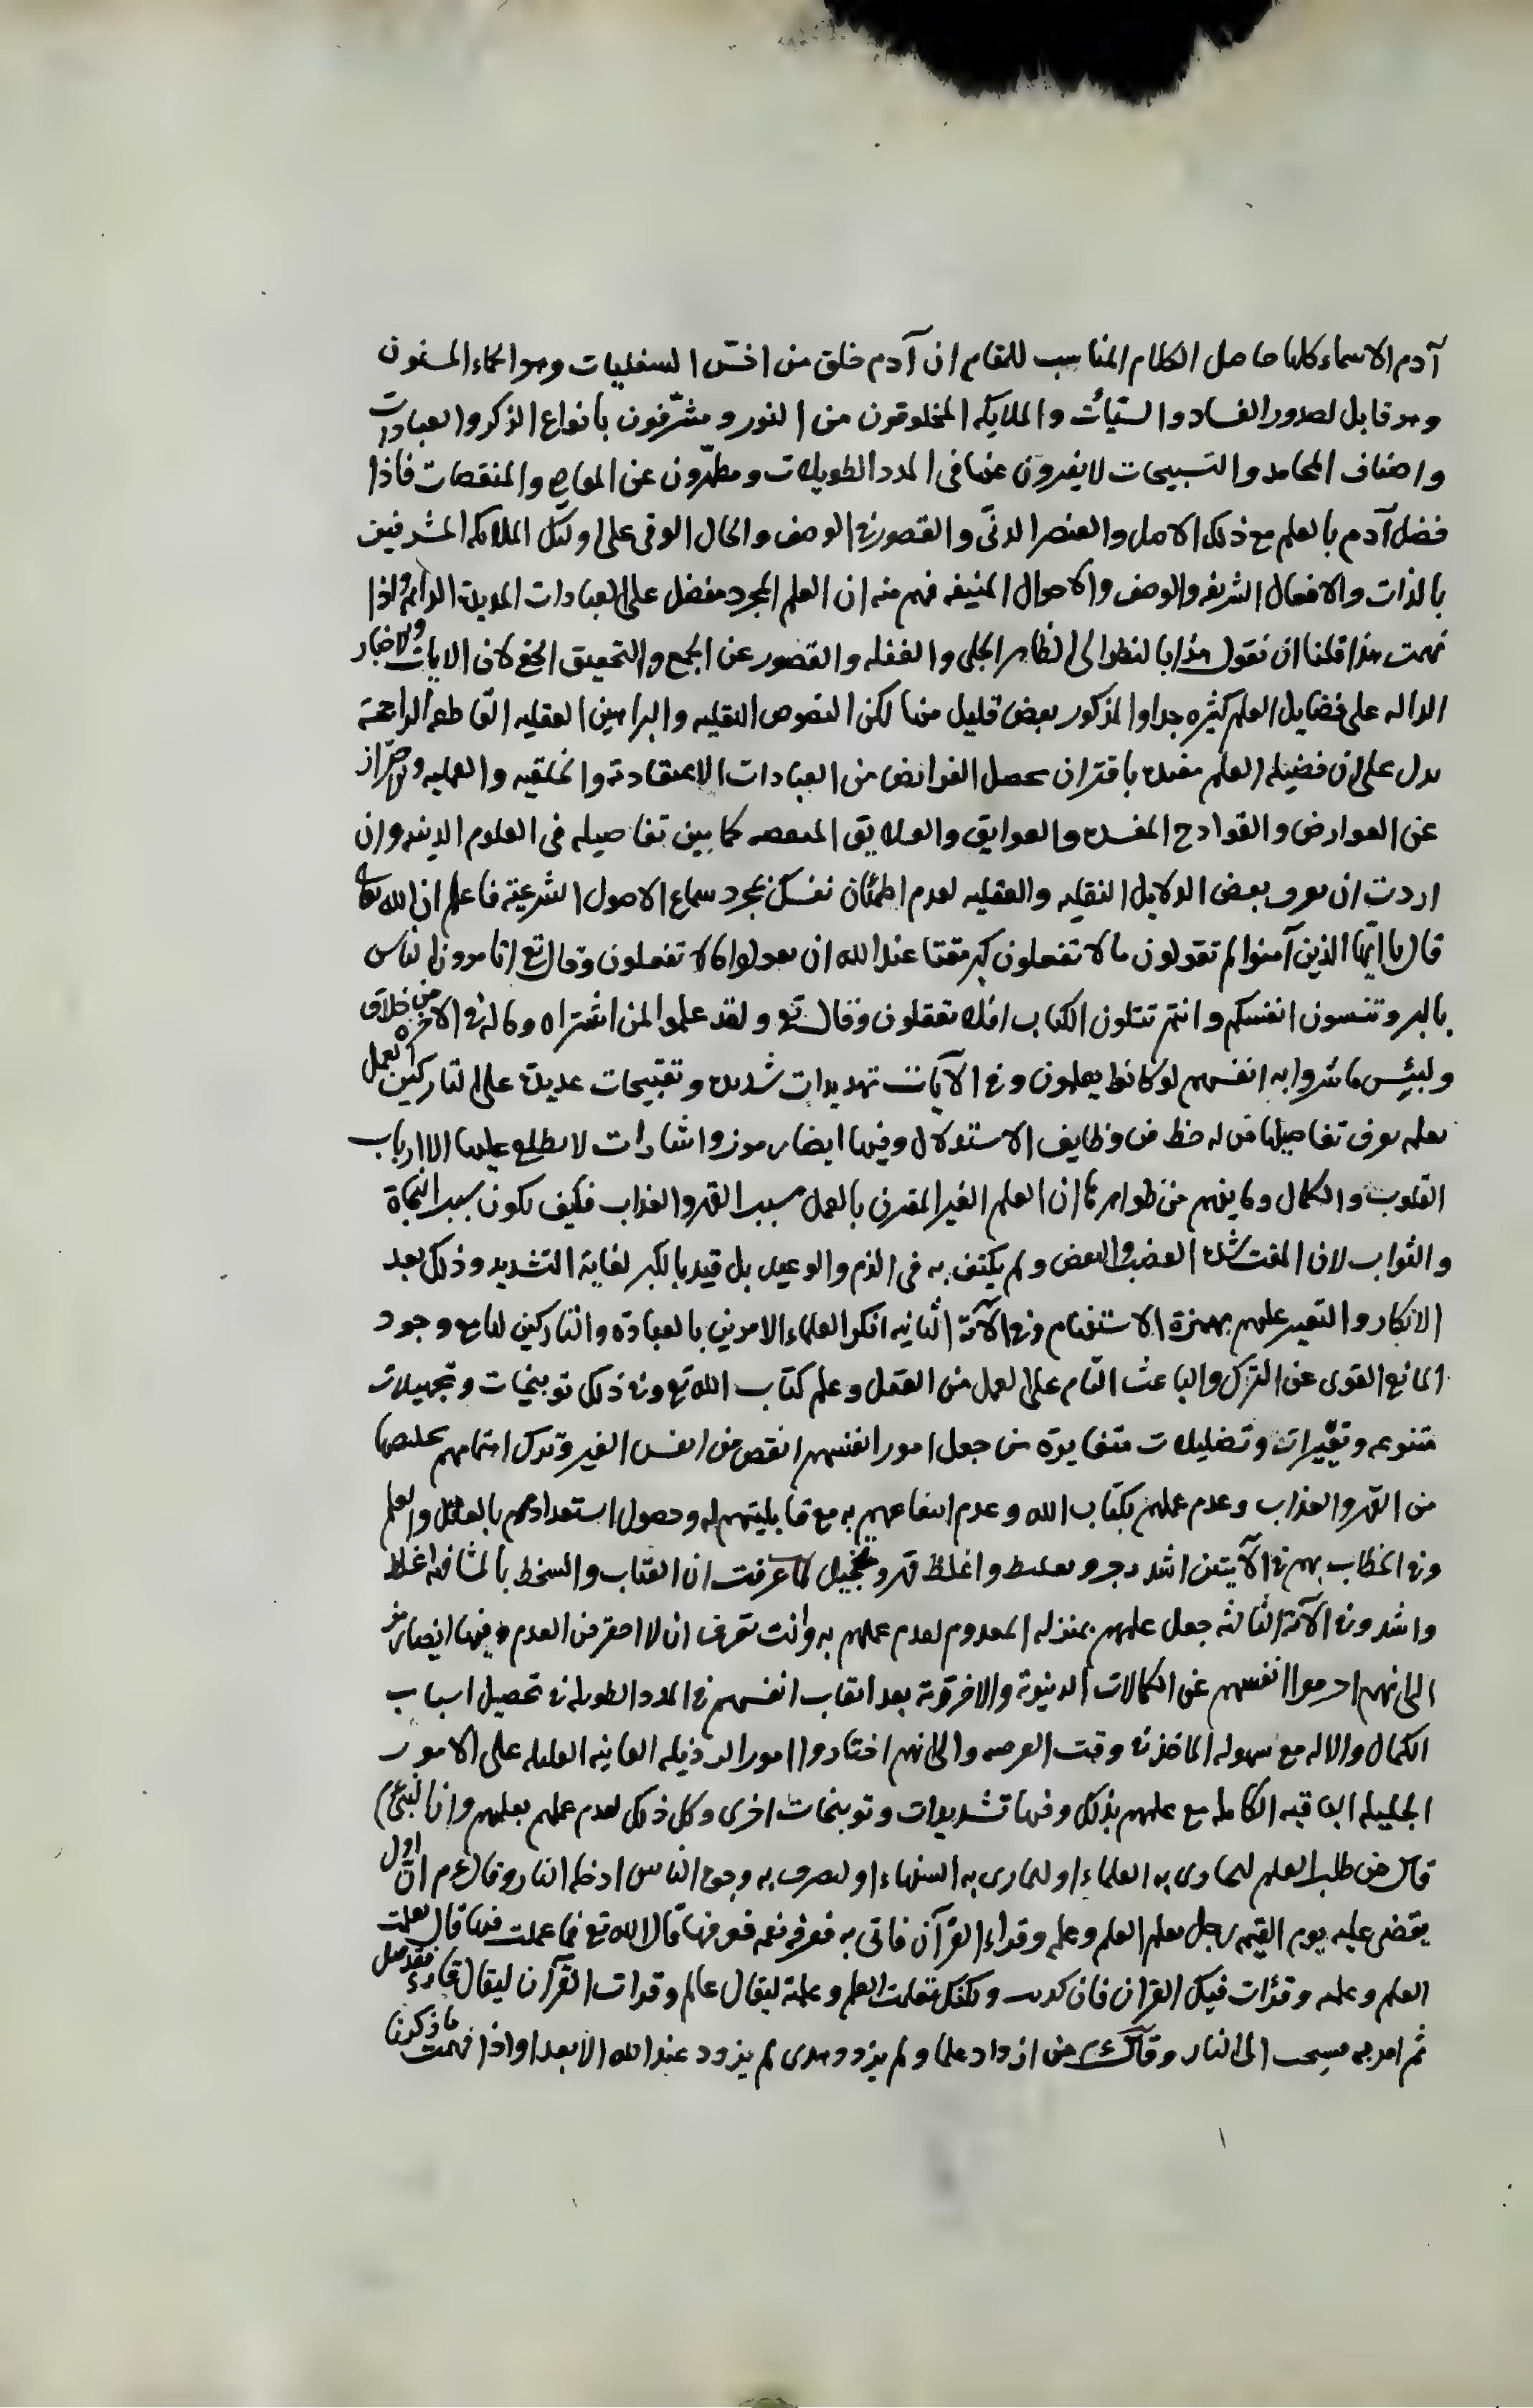 آدم الاسماء كلها حاصل الكلام المناسب للمقام ان آدم خلق من اخسّ السفليات وهو الحماء المسنون
وهو قابل لصدور الفساد والسيّأت والملايكه المخلوقون من النور ومشرّفون بانواع الذكر والعبادات
واصناف المحامد والتسبيحات لا يفترون عنها فى المدد الطويلات ومطهّرون عن المعاصى والمنقصات فاذا
فضل آدم بالعلم مع ذلك الاصل والعنصر الدنىّ والقصور فى الوصف والحال الوفى على اولئك الملايكه المشرفين
بالذات والافعال الشريفه والوصف والاحوال المنيفه فهم منه ان العلم المجرد مفضل على العبادات المديدة الدائمة واذا
فهمت هذا قلنا ان نقول هذا بالنظر الى الظاهر الجلى والغفله والقصور عن الجمع والتحقيق الخفى لان الايات والاخبار
الداله على فضايل العلم كثيره جدا والمذكور بعض قليل منها لكن النصوص النقليه والبراهين العقليه القاطعه الراجحة
يدل على ان فضيله العلم مقيده باقتران تحصل الفرائض من العبادات الاعتقادية والخلقيه والعمليه والاحتراز
عن العوارض والقوادح المفسده والعوايق والعلايق المنقصه كما بين تفاصيله فى العلوم الدينيه وان
اردت ان تعرف بعض الدلايل النقليه والعقليه لعدم اطمئنان نفسك بمجرد سماع الاصول الشرعية فاعلم ان الله تعالى
قال يا ايّها الذين آمنوا لم تقولون ما لا تفعلون كبر مقتا عند الله ان تقولوا ما لا تفعلون وقال تع اتامرون الناس
بالبر وتنسون انفسكم وانتم تتلون الكتاب افلا تعقلون وقال تع ولقد علموا لمن اشتراه وماله فى الاخره من خلاق
ولبئس ماشروا به انفسهم لو كانوا يعلمون وفى الآيات تهديدات شديده وتقبيحات عديدة على التاركين العمل
بعلمه يعرف تفاصيلها من له حظ من وظايف الاستدلال وفيها ايضا رموز واشارات لا يطلع عليها الا ارباب
القلوب والكمال ومما يفهم من ظواهرها ان العلم الغير المقترن بالعمل سبب القهر والعذاب فكيف يكون سبب النجاة
والثواب لان المقت شده الغضب والبغض ولم يكتف به فى الذم والوعيد بل قيد بالكبر لغاية التشديد وذلك بعد
الانكار والتعيير عليهم بهمزة الاستفهام وفى الآية الثانيه انكر العلماء الامرين بالعبادة والتاركين لها مع وجود
المانع القوى عن الترك والباعث التام على العمل من العقل وعلم كتاب الله تع وفى ذلك توبيخات وتجهيلات
متنوعه وتعييرات وتضليلات متغايرة من جعل امور انفسهم انقص من انفس الغير وترك اهتمامهم بخلاصها
من القهر والعذاب وعدم عملهم بكتاب الله وعدم انتفاعهم به مع قابليتهم له وحصول استعدادهم بالعقل والعلم
وفى الخطاب بهم فى الآيتين اشد زجر وتغليظ واغلظ قهر وتخجيل لما عرفت ان العتاب والسخط بالمشافهه اغلظ
واشد وفى الآية الثالثه جعل علمهم بمنزله المعدوم لعدم عملهم به وانت تعرف ان لا احقر من العدم وفيها ايضا رمز
الى انهم احرموا انفسهم عن الكمالات الدنيوية والاخروية بعد اتعاب انفسهم فى المدد الطويله فى تحصيل اسباب
الكمال والاله مع سهوله الماخذ فى وقت الفرصه والى انهم اختاروا امور الرذيله الفانيه القليله على الامور
الجليله الباقيه الكامله مع علمهم بذلك وفيها تشديدات وتوبيخات اخرى وكل ذلك لعدم عملهم بعلمهم وان النبى عم
قال من طلب العلم ليجارى به العلماء او ليمارى به السفهاء او ليصرف به وجوه الناس ادخله النار وقال عم ان اول
يقضى عليه يوم القيمه رجل تعلم العلم وعلمه وقراء القرآن فاتى به فعرفه نعمه فعرفها قال الله تع فما عملت فيها قال تعلمت
العلم وعلمه وقرأت فيك القران قال كذبت ولكنك تعلمت العلم وعلمته ليقال عالم وقرات القرآن ليقال قارى فقد قيل
ثم امر به فسحب الى النار وقال عم من ازداد علما ولم يزدد هدى لم يزدد عند الله الا بعدا واذا فهمت ما ذكرنا